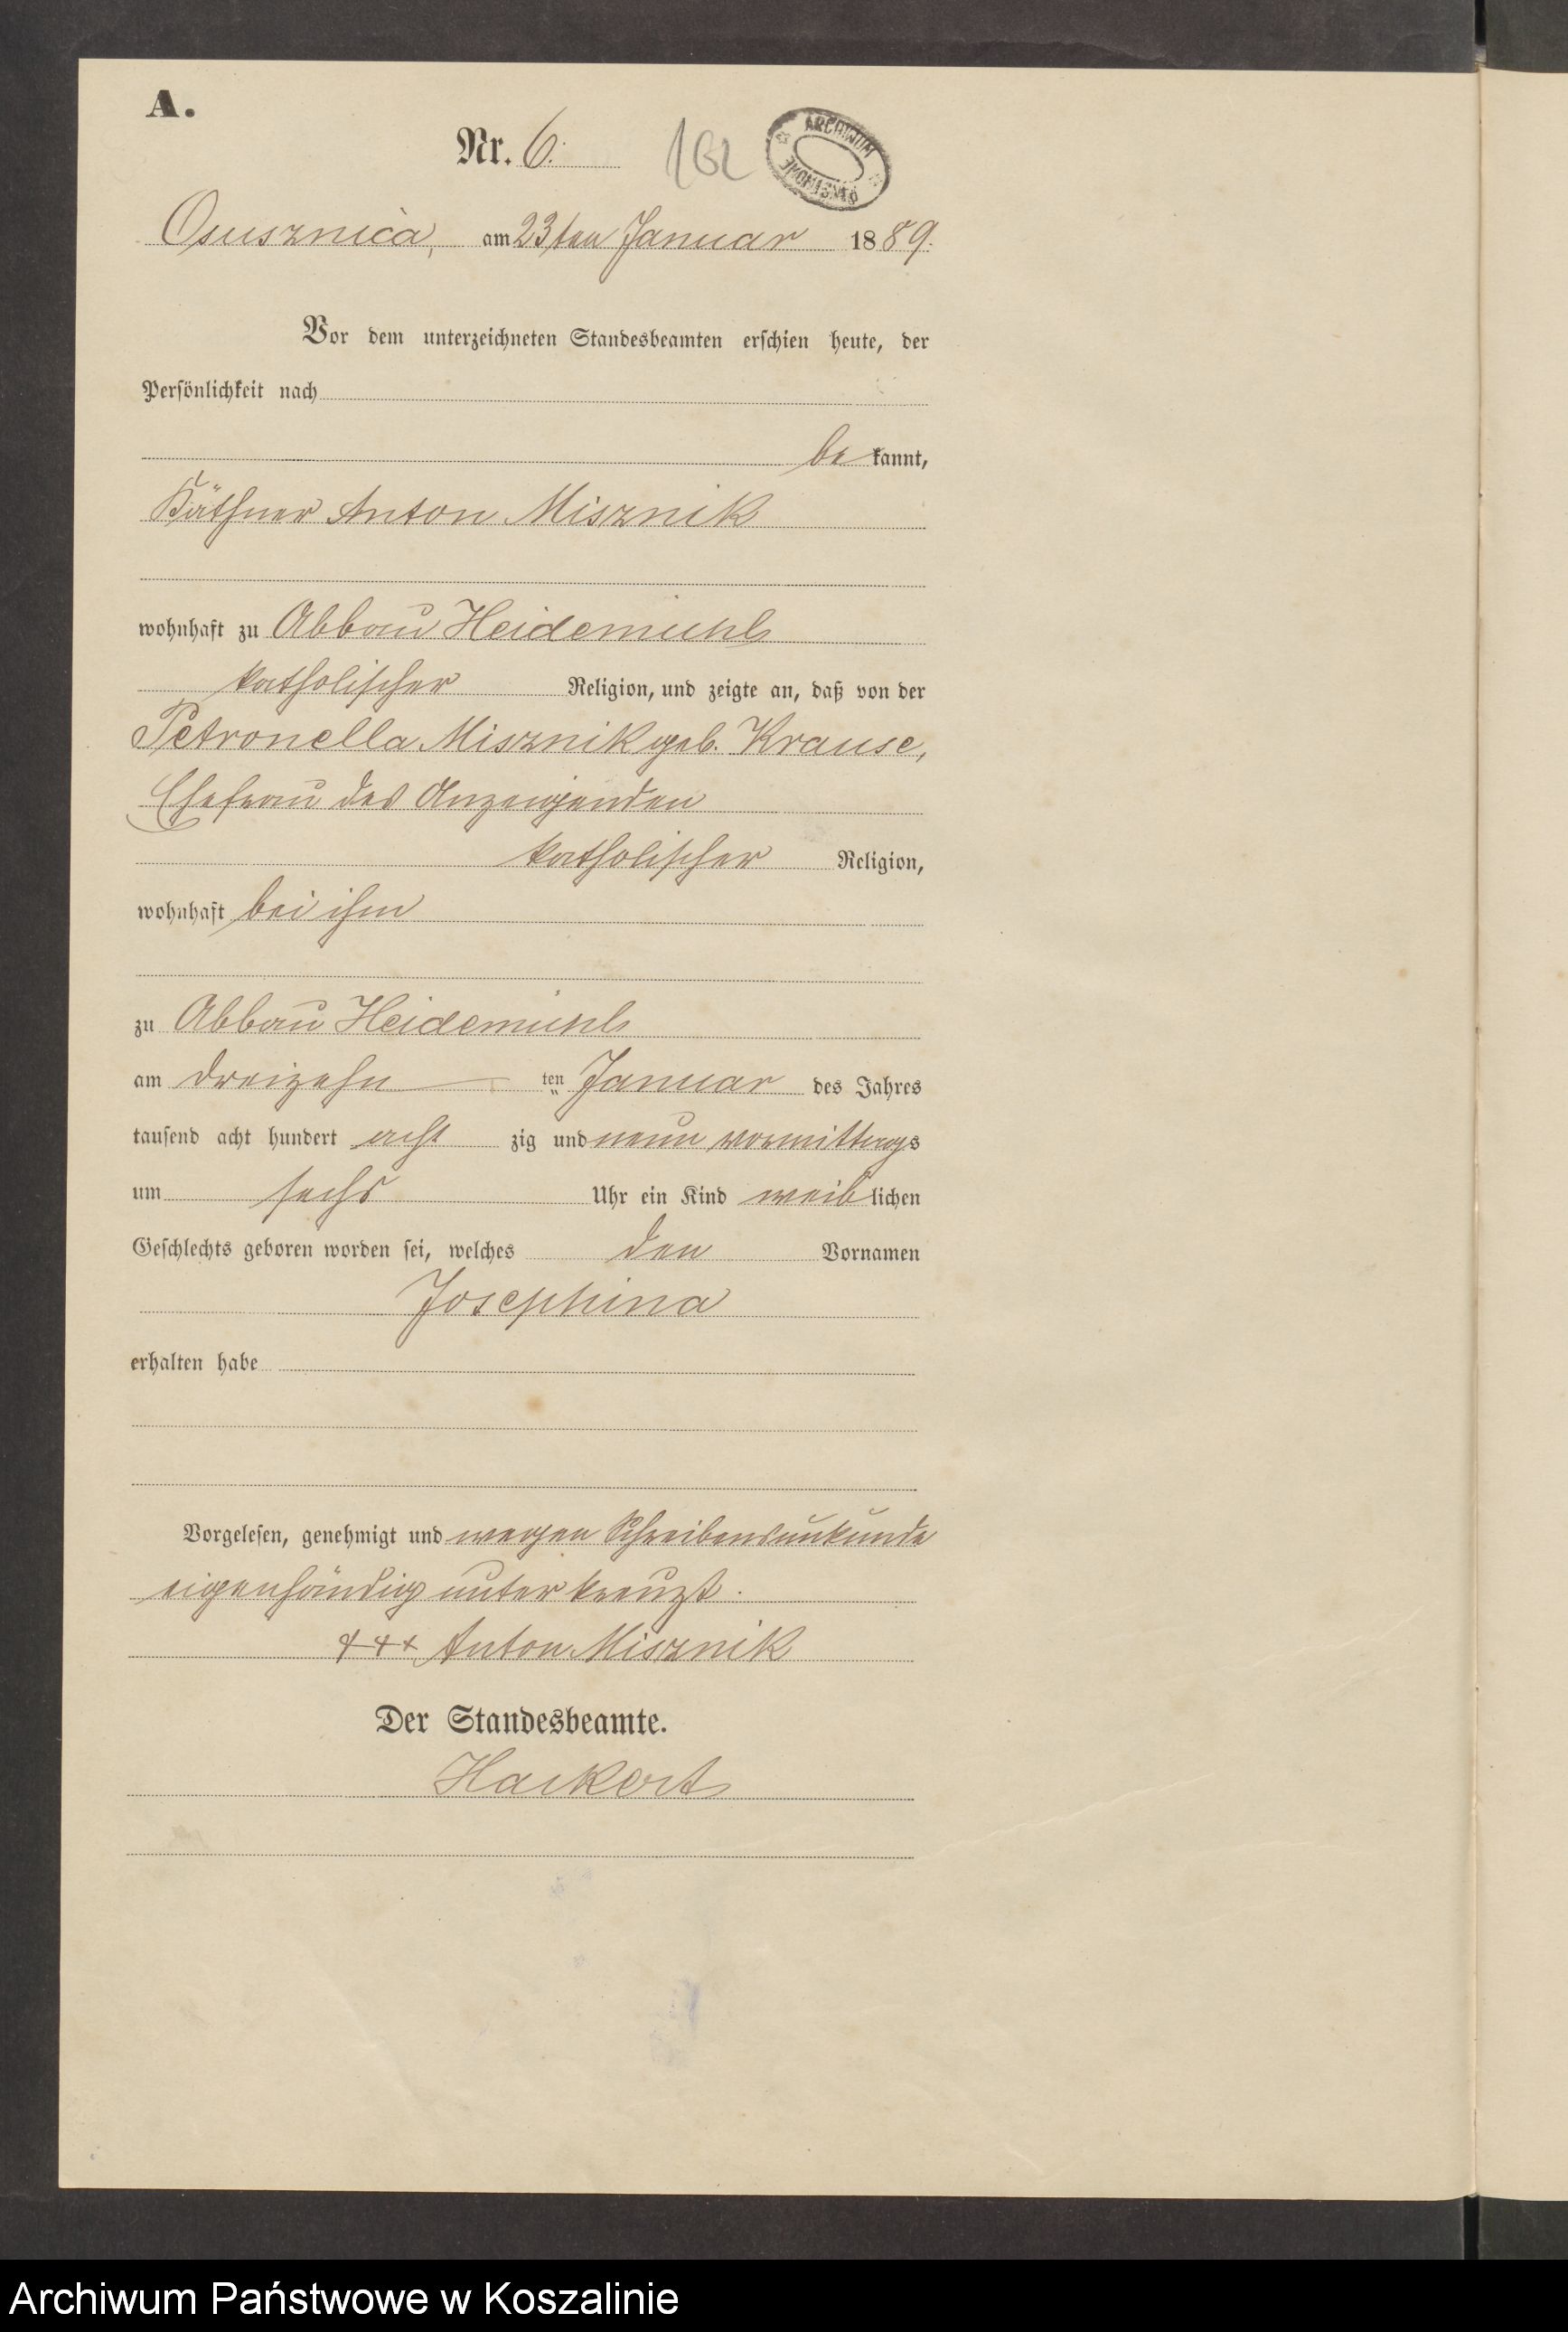 A.
Nr. 6. 162 ARCHIWUM PAŃSTWOWE
Osusznica, am 23ten Januar 1889.
Vor dem unterzeichneten Standesbeamten erschien heute, der
Persönlichkeit nach
bekannt,
Käthner Anton Misznik
wohnhaft zu Abbau Heidemühl
katholischer Religion, und zeigte an, daß von der
Petronella Misznik geb. Krause,
Ehefrau des Anzeigenden
katholischer Religion,
wohnhaft bei ihm
zu Abbau Heidemühl
am dreizehn ten Januar des Jahres
tausend acht hundert acht zig und neun vormittags
um sechs Uhr ein Kind weiblichen
Geschlechts geboren worden sei, welches den Vornamen
Josephina
erhalten habe
Vorgelesen, genehmigt und wegen Schreibensunkunde
eigenhändig unterkreuzt.
+++ Anton Misznik
Der Standesbeamte.
Hackert
Archiwum Państwowe w Koszalinie